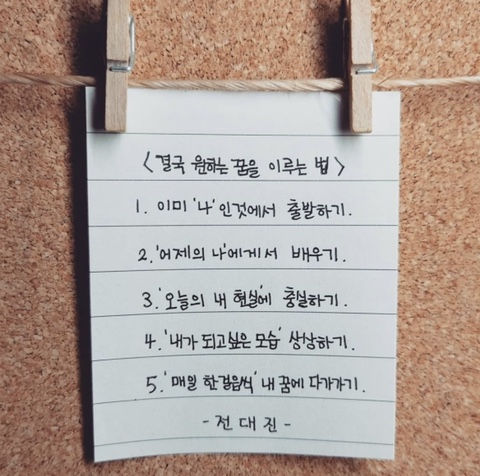 <결국 원하는 꿈을 이루는 법>
1. 이미 '나'인것에서 출발하기.
2. '어제의 나'에게서 배우기.
3. '오늘의 내 현실'에 충실하기.
4. '내가 되고싶은 모습' 상상하기.
5. '매일 한걸음씩' 내 꿈에 다가가기.
- 전대진 -